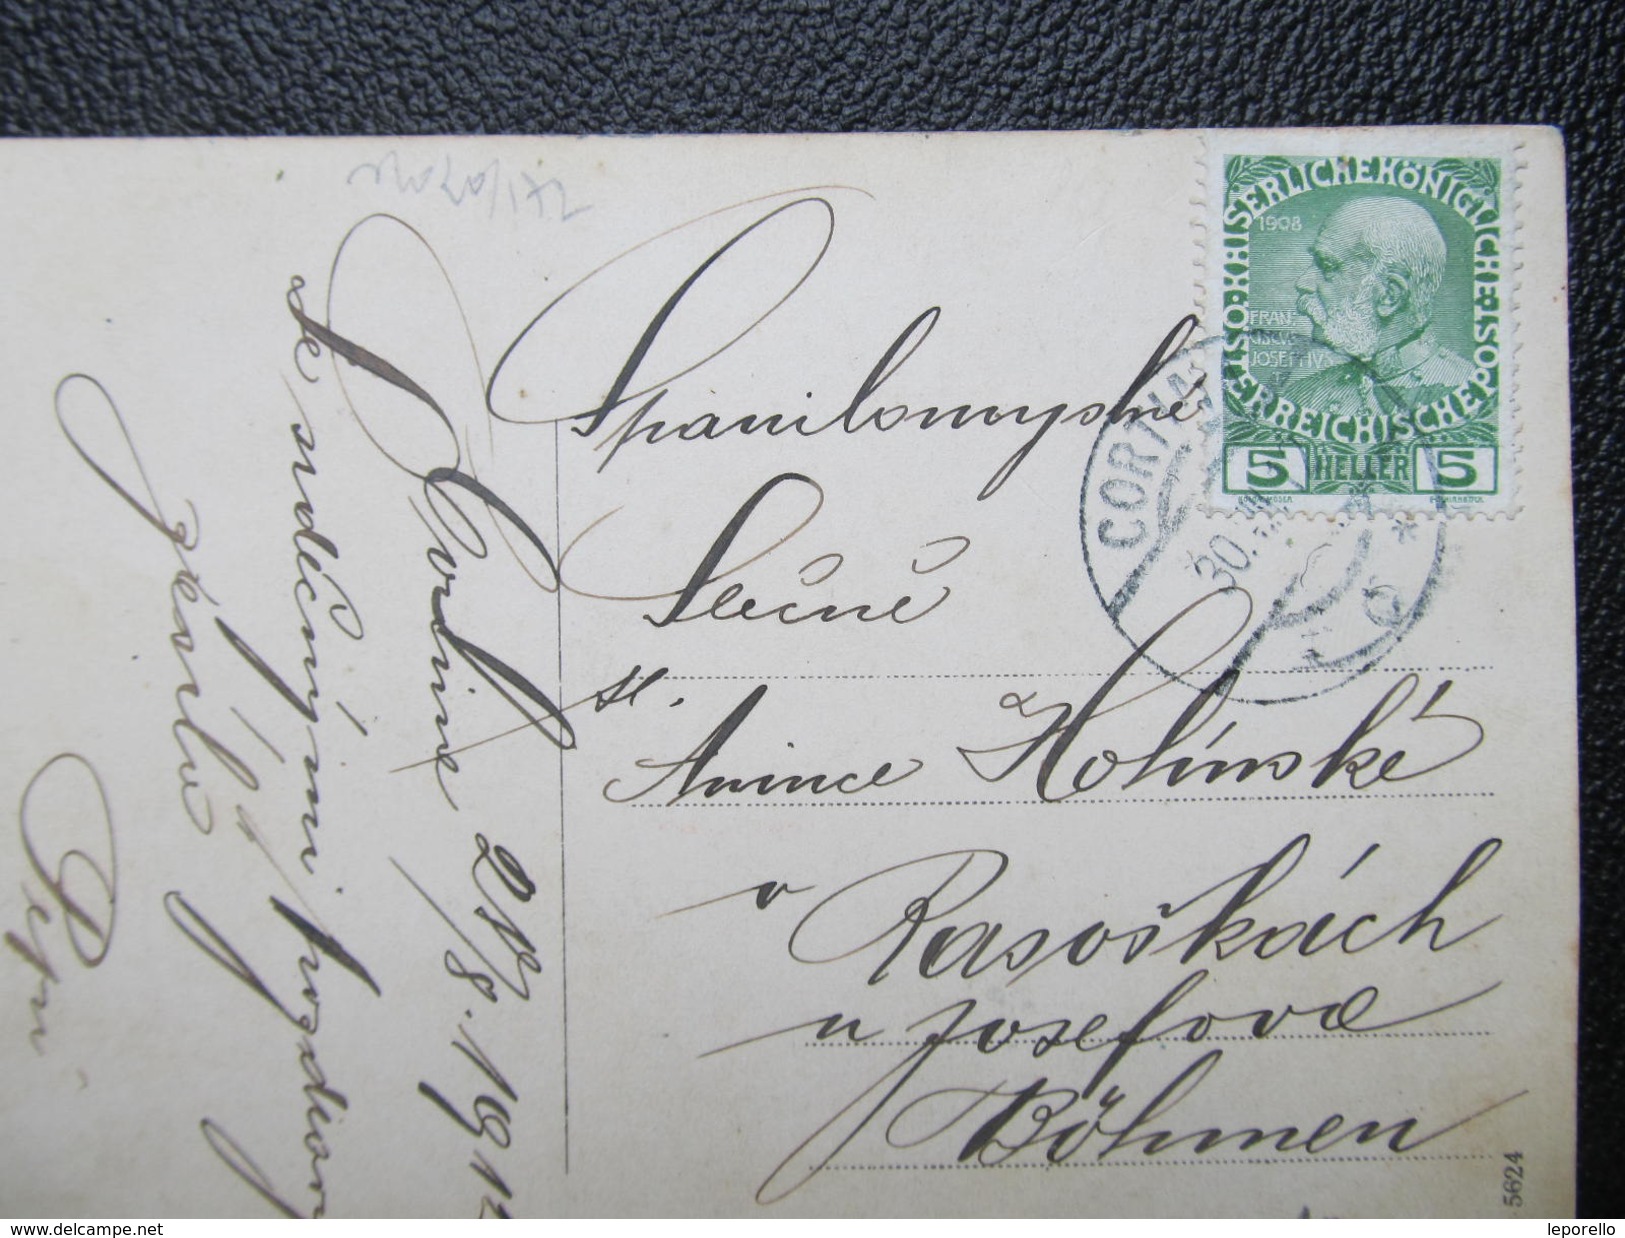 1908
KAISERLICHE KÖNIGLICHE
ÖSTERREICHISCHE POST
FRAN
CISCVS
JOSEPHVS
I
5 HELLER 5
CORTINA
30.
Spanilomyslné
Slečně
sl.
Anince Holínské
v Rasoškách
u Josefova
Böhmen
5624
V Cortině 28/8. 1912
se srdečnými pozdravy
zévlu
Pepa
www.delcampe.net
leporello